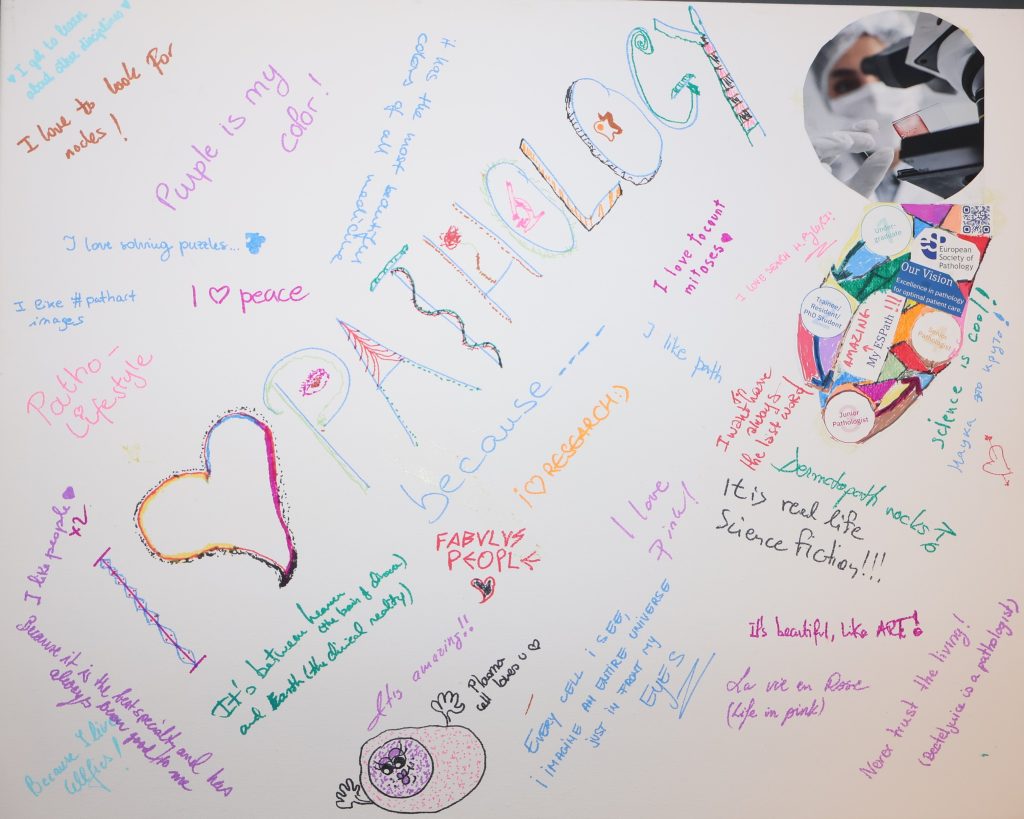 ♥ I get to learn
about other disciplines ♥
I love to look for
nodes!
Purple is my
color!
it has the most beautiful
colors of all
medicine
I love solving puzzles...
I like #pathart
images
I ♡ peace
Patho-
Lifestyle
I ♡ PATHOLOGY
because ----
I love to count
mitoses ♥
I LOVE SEARCH H. pylori
I like path
under-
graduate
ESP
European
Society of
Pathology
Our Vision
Excellence in pathology
for optimal patient care.
Trainee/
Resident/
PhD Student
AMAZING
My ESPath !!!
Senior
Pathologist
Junior
Pathologist
science is cool!!
Наука это круто!
I want have
always
the last word!
i ♡ RESEARCH :)
Dermatopath rocks
It is real life
Science Fiction!!!
I love
Pink!
FABULUS
PEOPLE
I like people ♥
x2
It's between heaven
(the brain of
and Earth (the clinical reality)
Because it is the best specialty and has
always been good to me
Because I live
cellfies!
It's amazing!!
Plasma
cell loves u ♡
EVERY CELL I SEE,
I IMAGINE AN ENTIRE UNIVERSE
JUST IN FRONT MY
EYES
It's beautiful, like ART!
La vie en Rose
(Life in pink)
Never trust the living!
(Beeteljuice is a pathologist)